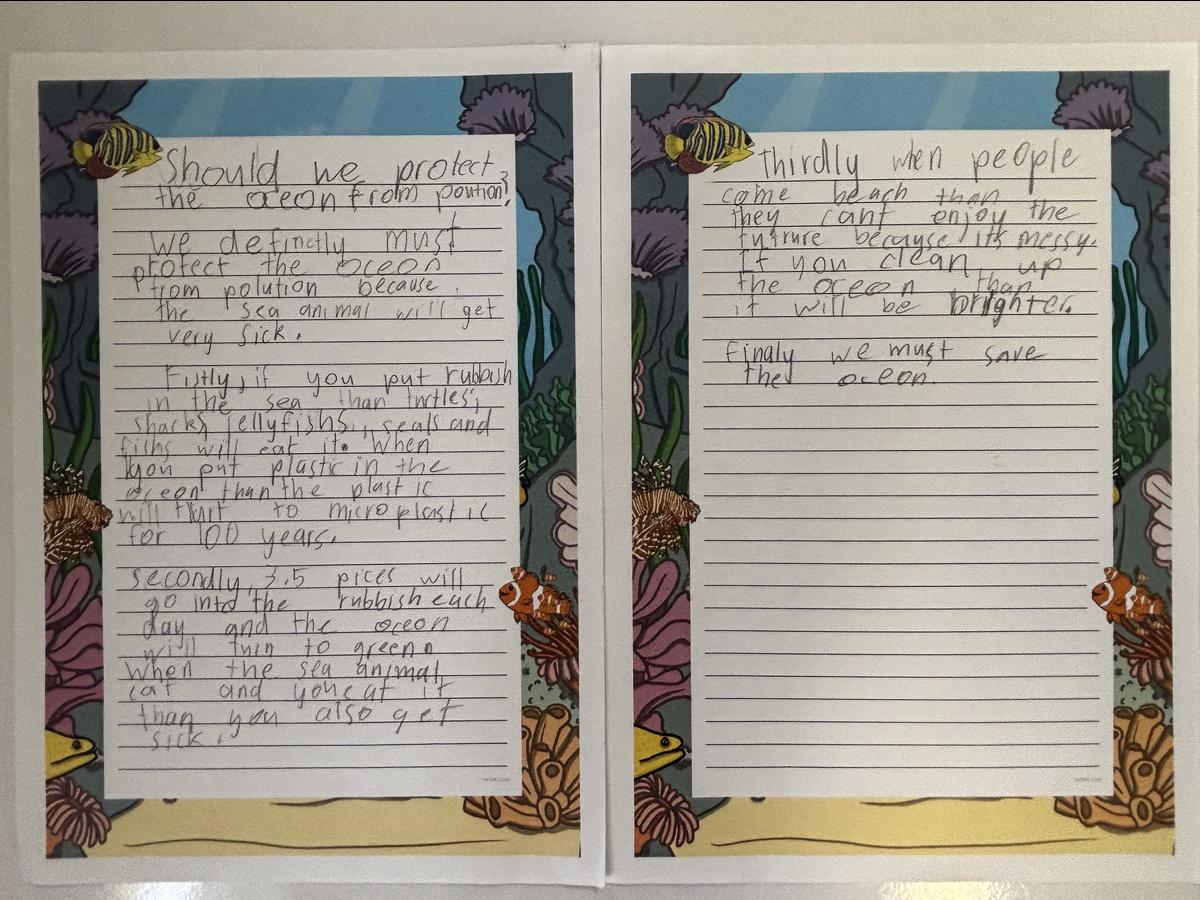 Should we protect
the oceon from poution?
We definctly must
protect the oceon
from polution because
the sea animal will get
very sick.
Fistly, if you put rubbish
in the sea than turtles,
sharks, jellyfishs, seals and
fishs will eat it. When
you put plastic in the
oceon than the plastic
will turt to microplastic
for 100 years.
Secondly, 3.5 pices will
go into the rubbish each
day and the oceon
will turn to green.
When the sea animal
eat and you eat it
than you also get
sick.
Thirdly when people
come beach than
they cant enjoy the
futrure because its messy.
If you clean up
the oceon than
it will be brighter.
Finaly we must save
the oceon.